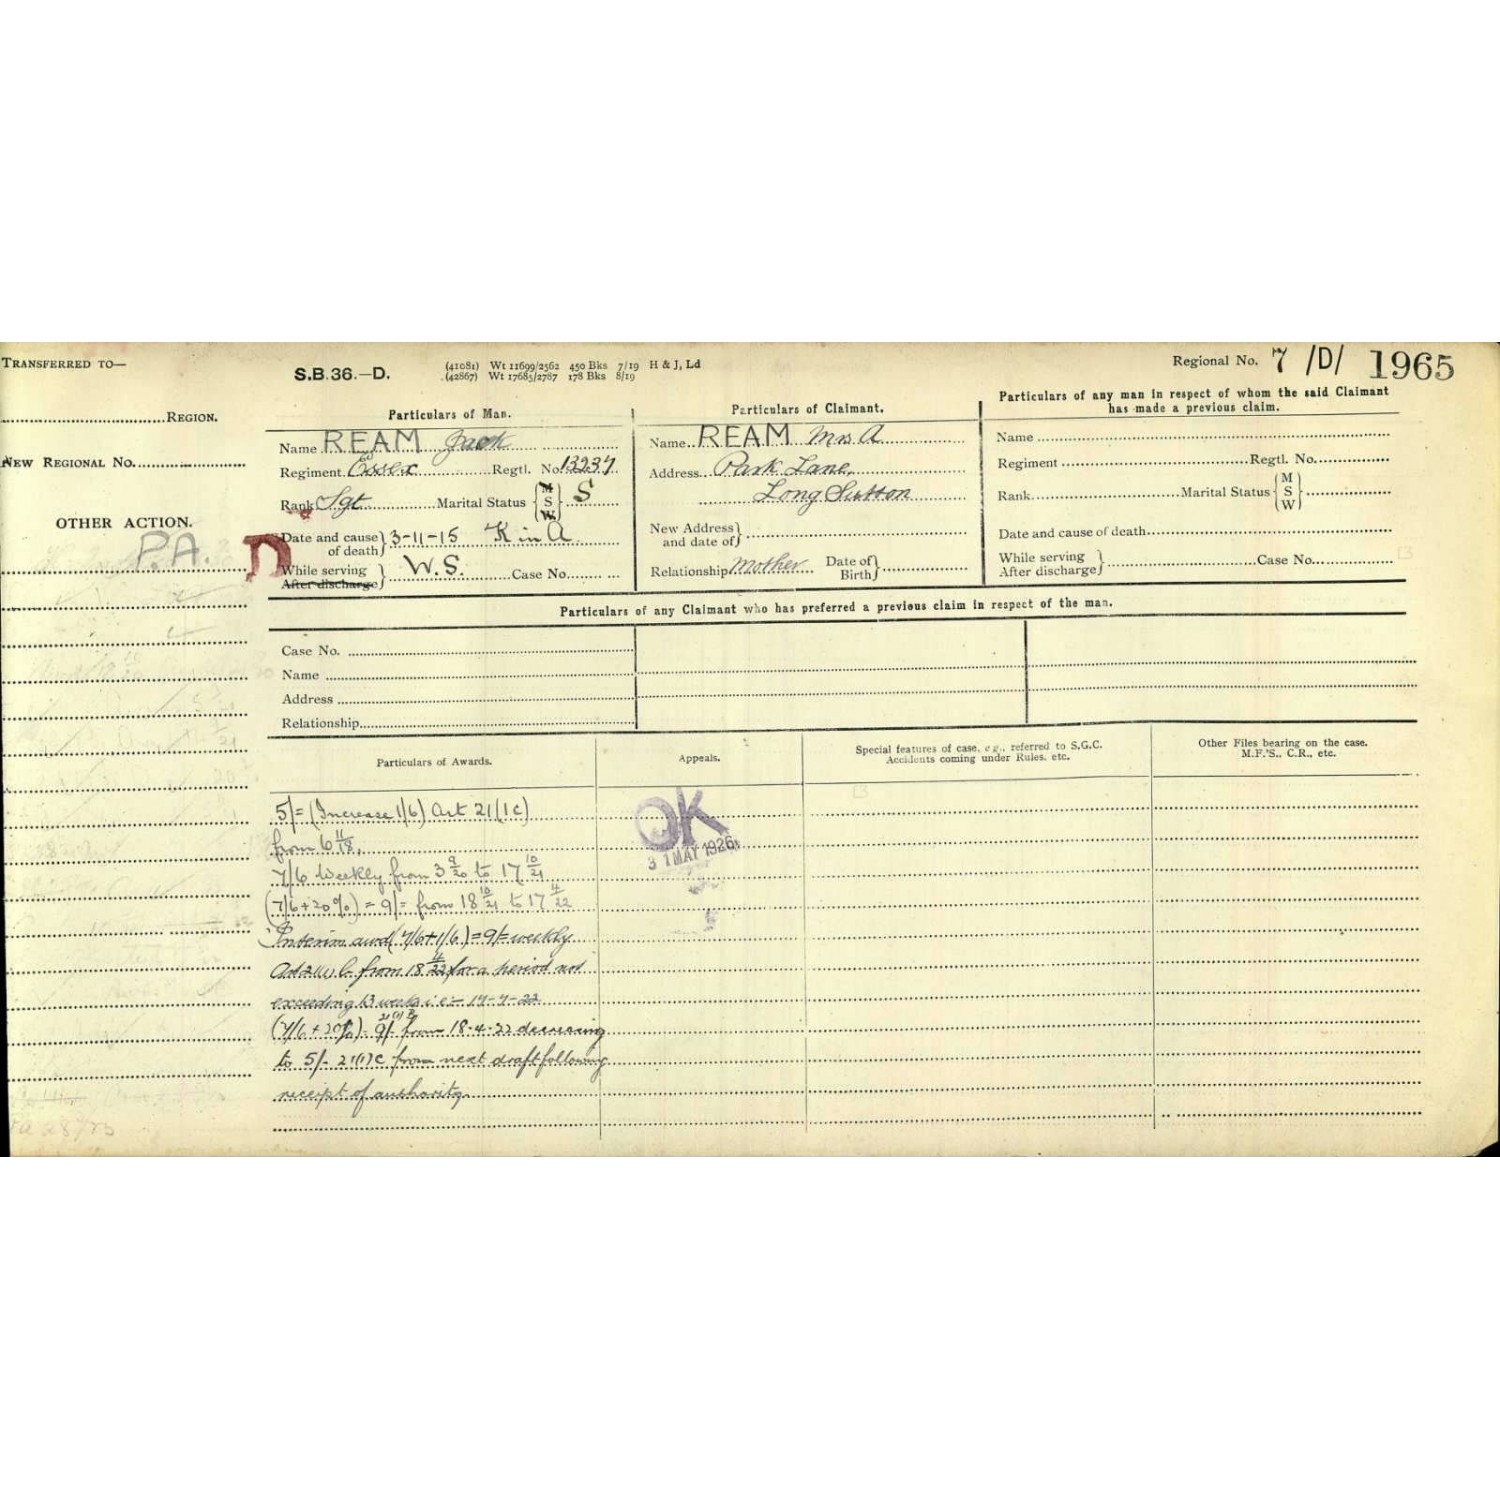 TRANSFERRED TO—
REGION.
NEW REGIONAL NO.
OTHER ACTION.
P.A.
S.B.36.—D.
(41081) Wt 11699/2562 450 Bks 7/19 H & J, Ld
(42867) Wt 17685/2787 178 Bks 8/19
Regional No. 7 /D/ 1965
Particulars of Man.
Name REAM Jack
Regiment Essex Regtl. No 13237
Rank Sgt Marital Status { M S W } S
Date and cause of death } 3-11-15 K in A
D
While serving
After discharge } W.S. Case No.
Particulars of Claimant.
Name REAM Mrs A
Address Park Lane,
Long Sutton
New Address and date of }
Relationship Mother Date of Birth }
Particulars of any man in respect of whom the said Claimant
has made a previous claim.
Name
Regiment Regtl. No.
Rank Marital Status { M S W }
Date and cause of death
While serving
After discharge } Case No.
Particulars of any Claimant who has preferred a previous claim in respect of the man.
Case No.
Name
Address
Relationship
Particulars of Awards.
Appeals.
Special features of case, e.g., referred to S.G.C.
Accidents coming under Rules, etc.
Other Files bearing on the case.
M.F.'S., C.R., etc.
5/= (Increase 1/6) Art 21(1c)
from 6 11/18,
7/6 Weekly from 3 9/20 to 17 10/21
(7/6+20%) = 9/= from 18 10/21 to 17 4/22
Interim awd (7/6+1/6) = 9/= weekly
from 18 4/22 for a period not
exceeding 13 weeks i.e:- 17-7-22
(7/6 + 20%) = 9/- 21(1)B from 18-4-22 decreasing
to 5/- 21(1)C from next draft following
receipt of authority
OK
31 MAY 1926